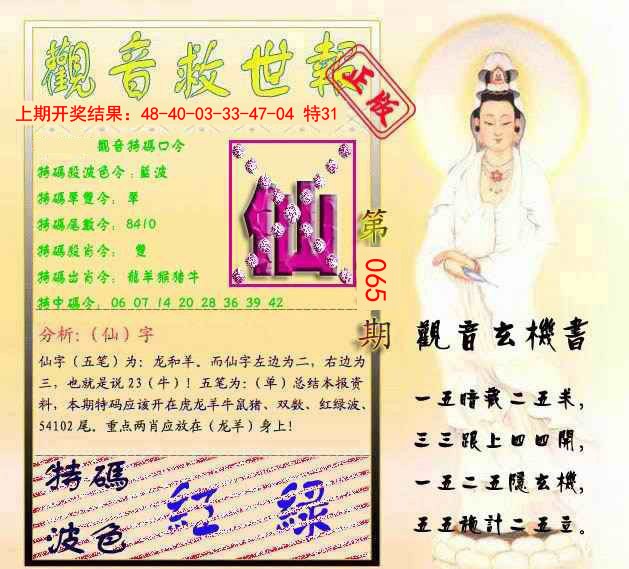 觀音救世報
正版
上期开奖结果：48-40-03-33-47-04 特31
觀音特碼口令
特碼段波色令：藍波
特碼單雙令： 單
特碼尾數令： 8410
特碼段肖令： 雙
特碼出肖令： 龍羊猴猪牛
特中碼令： 06 07 14 20 28 36 39 42
仙
第
065
期
分析:（仙）字
仙字（五笔）为：龙和羊。而仙字左边为二，右边为
三，也就是说 23（牛）！五笔为：（单）总结本报资
料，本期特码应该开在虎龙羊牛鼠猪、双数、红绿波、
54102 尾。重点两肖应放在（龙羊）身上！
特碼
波色
紅 綠
觀音玄機書
一五暗藏二五米，
三三跟上四四開，
一五二五隱玄機，
五五施計二五立。